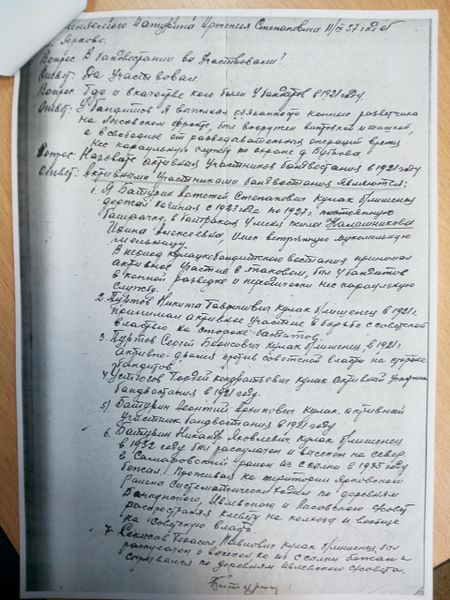 Батурина Артемия Степановича 11/IX 37 года об
Ярково.
Вопрос: В бандвостании вы Участвовали?
Ответ: Да Участвовал.
Вопрос: Где и в качестве кого были У бандитов в 1921 году.
Ответ: У бандитов я выполнял обязанности конного разведчика
на фронте, был вооружен винтовкой и шашкой,
в свободное от разведывательной операций время
нес караульную службу по охране д.
Вопрос: Назовите активных Участников бандвостания в 1921 году
Ответ: Активными Участниками бандвостания являются:
1. Я Батурин Степанович Кулак облишенец
с 1923 года по 1927 г. постоянную
батрачку, в батрачках У меня жила Калашникова
Ирина Алексеевна, имел ветряную мукомольную
мельницу.
В период кулацко бандитского востания принимал
активное Участие в таковом, был У бандитов
в конной разведке и периодически нес караульную
службу.
2. Пуртов Никита Кулак облишенец в 1921 г.
принимал активное Участие в борьбе с советской
властью на стороне бандитов.
3. Пуртов Сергей Борисович Кулак облишенец в 1921 г.
Активно дрался против советской власти на стороне
бандитов.
4. Кондратьевич кулак активный Участник
бандвостания в 1921 году.
5) Батурин Леонтий Кулак, активный
Участник бандвостания в 1921 году
6. Батурин Никандр Яковлевич Кулак облишенец
в 1932 году был раскулачен и выслан на север
в Самаровский район из ссылки в 1935 году
бежал. Проживая на территории Ярковского
Района Систематически ходил по деревням
Иевлевского и с/совет
распространял клевету на колхозы и вообще
на Советскую власть
7. Павлович Кулак облишенец был
раскулачен и выслан но из ссылки бежал и
скрывался по деревням Иевлевского с/совета.
Батурин